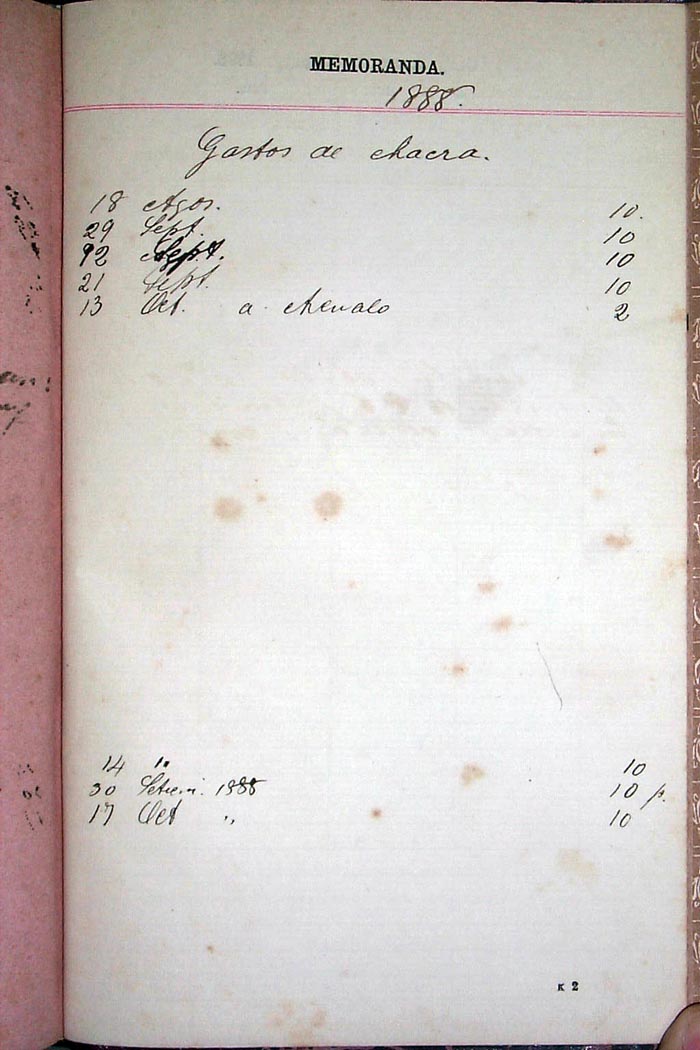 MEMORANDA.
1888.
Gastos de chacra.
18 Agos. 10.
29 Sept. 10
12 Sept. 10
21 Sept. 10
13 Oct. a 2
14 " 10
30 1888 10 p.
17 Oct " 10
K 2